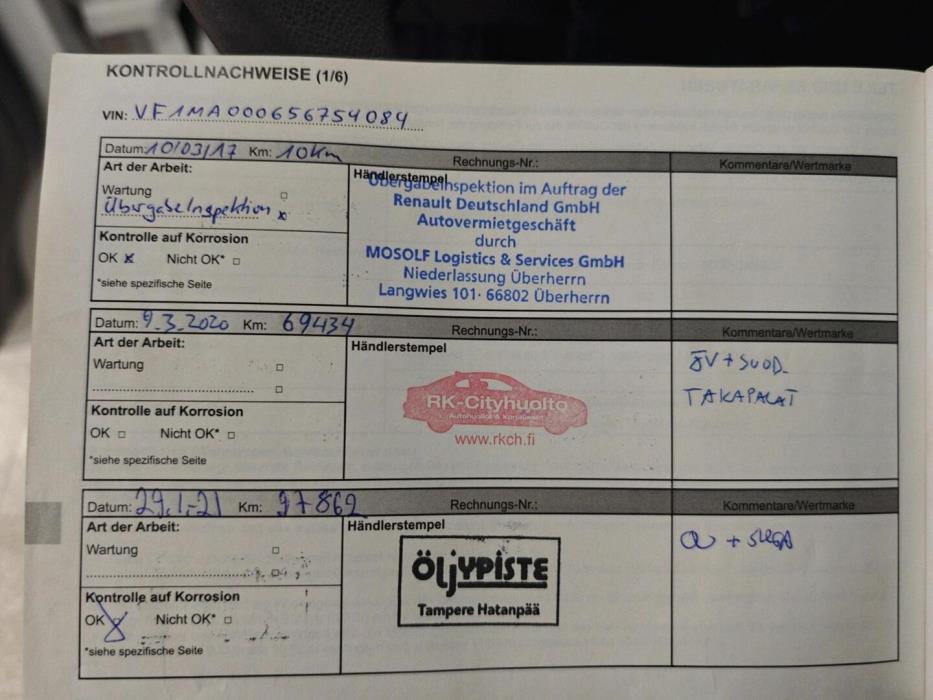 KONTROLLNACHWEISE (1/6)
VIN: VF1MA000656754084
Datum: 10/03/17 Km: 10Km Rechnungs-Nr.: Kommentare/Wertmarke
Art der Arbeit:
Händlerstempel
Wartung □
Übergabeinspektion x
Kontrolle auf Korrosion
OK x Nicht OK* □
*siehe spezifische Seite
Übergabeinspektion im Auftrag der
Renault Deutschland GmbH
Autovermietgeschäft
durch
MOSOLF Logistics & Services GmbH
Niederlassung Überherrn
Langwies 101· 66802 Überherrn
Datum: 9.3.2020 Km: 69434 Rechnungs-Nr.: Kommentare/Wertmarke
Art der Arbeit:
Händlerstempel
Wartung □
□
Kontrolle auf Korrosion
OK □ Nicht OK* □
*siehe spezifische Seite
RK-Cityhuolto
Autohuollot & Korjaukset
www.rkch.fi
ÖV + SUOD.
TAKAPALAT
Datum: 29.1.-21 Km: 97862 Rechnungs-Nr.: Kommentare/Wertmarke
Art der Arbeit:
Händlerstempel
Wartung □
□
Kontrolle auf Korrosion
OK x Nicht OK* □
*siehe spezifische Seite
ÖljYPISTE
Tampere Hatanpää